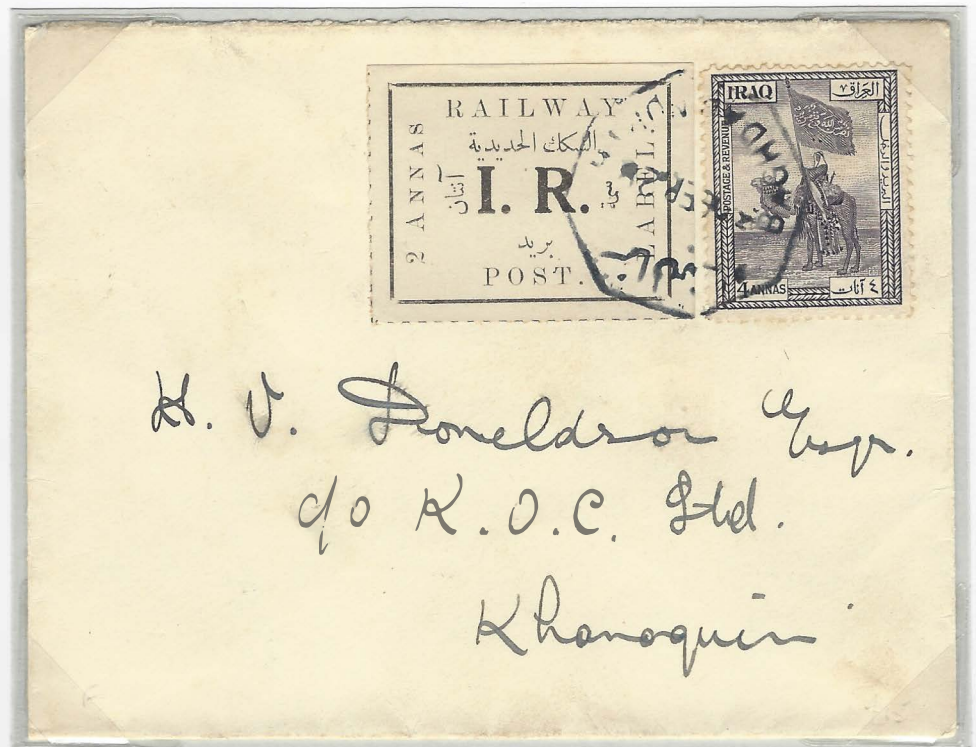 RAILWAY
السكك الحديدية
2 ANNAS
آنتان
I. R.
بريد
POST.
IRAQ
العراق
POSTAGE & REVENUE
4 ANNAS
٤ آنات
BAGHDA
H. V. Donaldson Esqr.
c/o K.O.C. Ltd.
Khanaquin